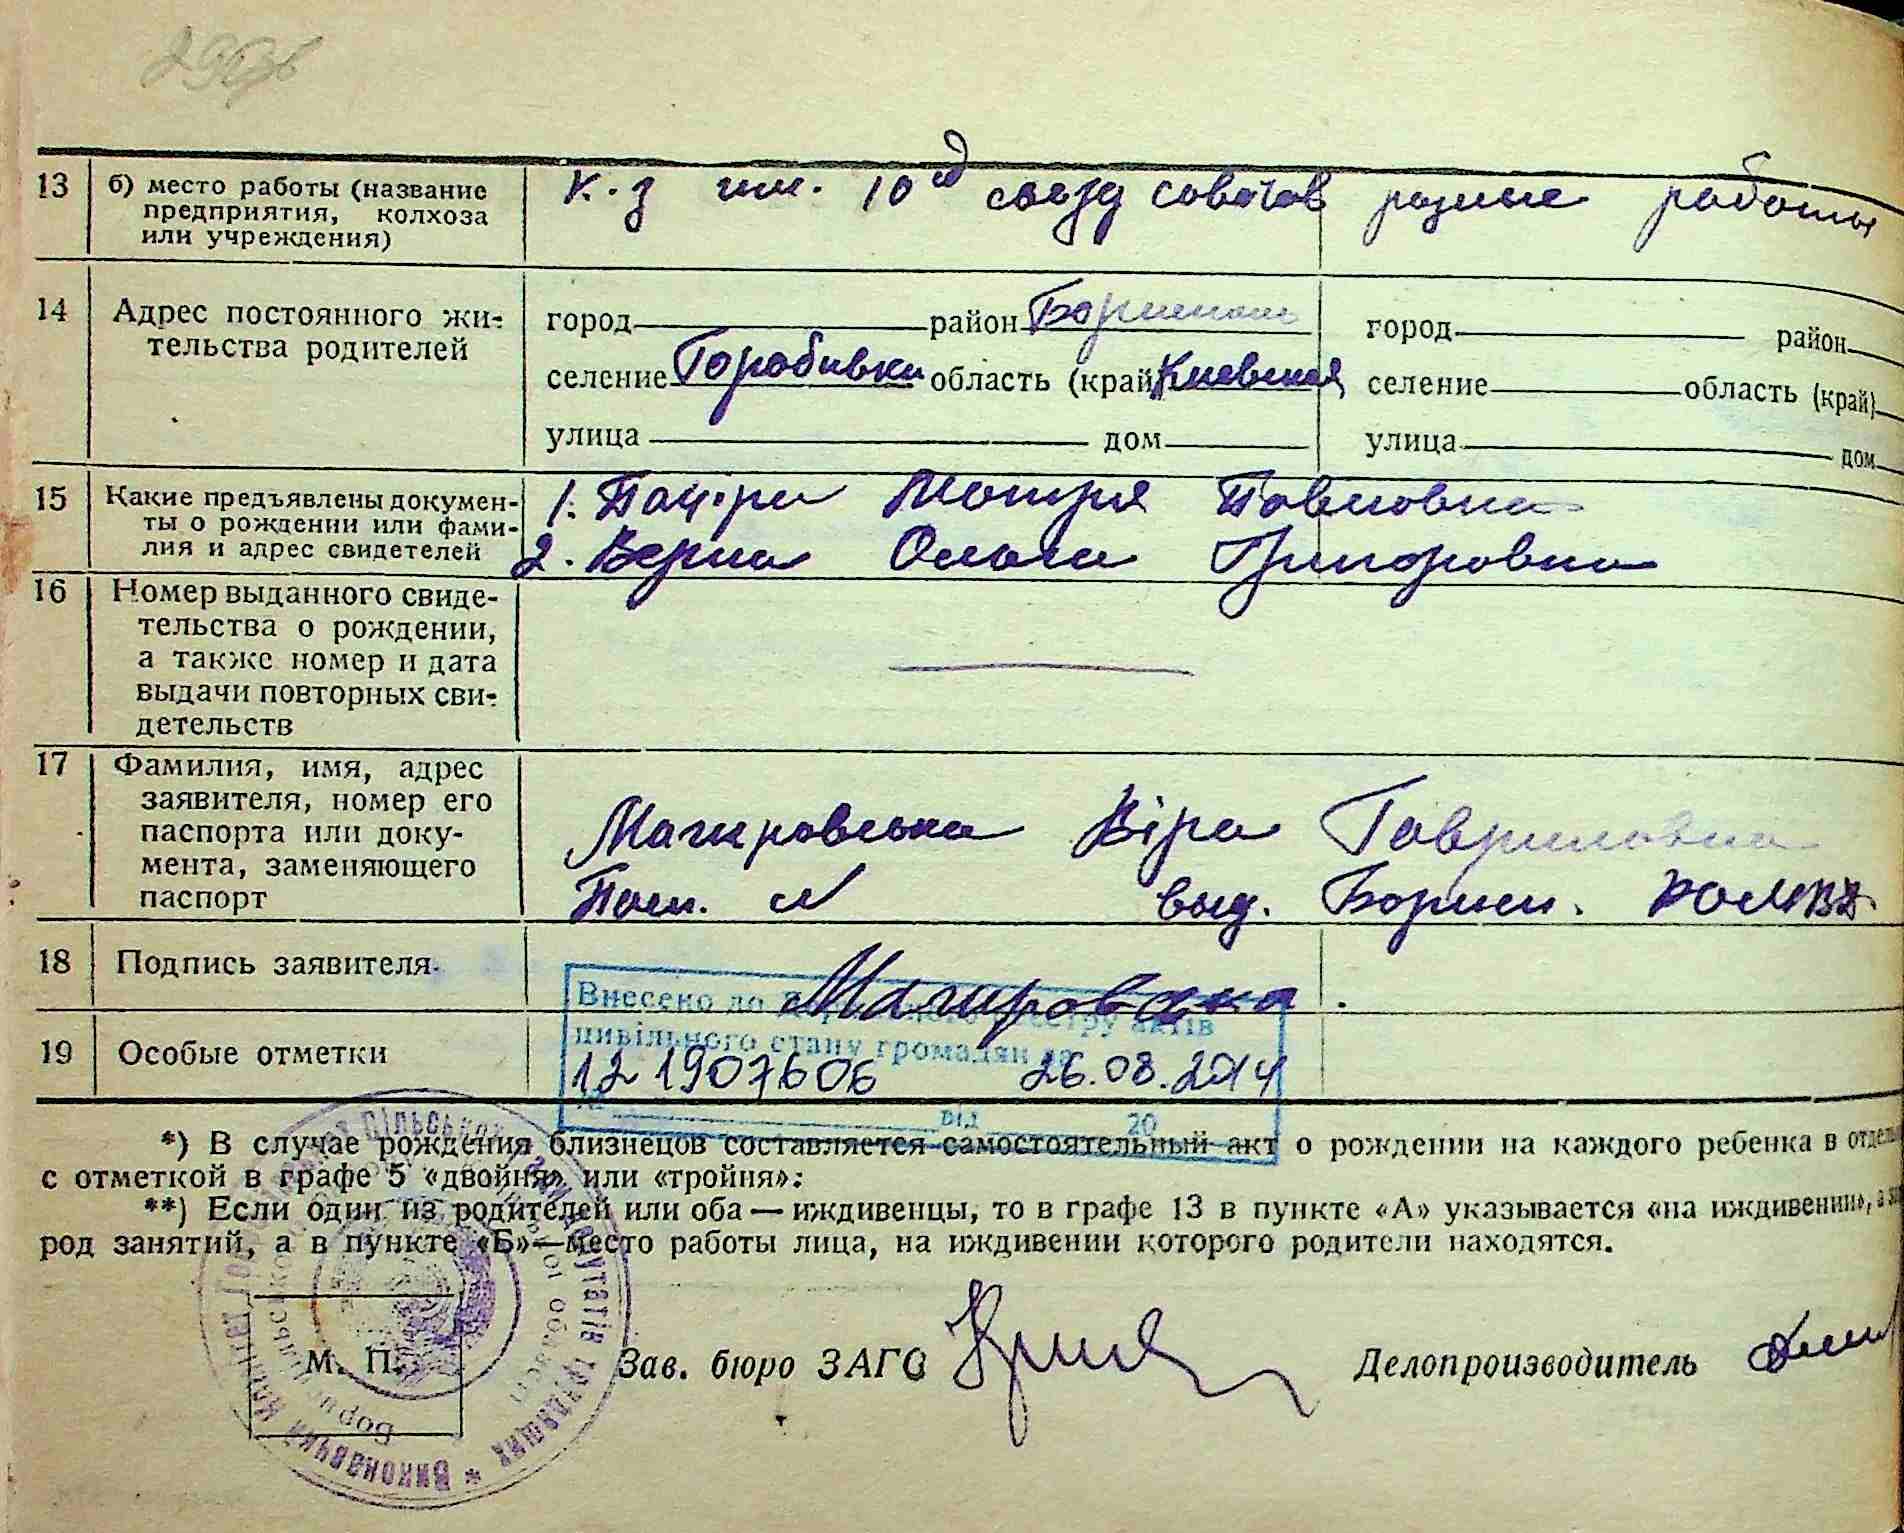 13 б) место работы (название предприятия, колхоза или учреждения) К-з им. 10 съезд советов разные работы
14 Адрес постоянного жительства родителей
город район Бориспол город район
селение Горобивка область (край) Киевская селение область (край)
улица дом улица дом
15 Какие предъявлены документы о рождении или фамилия и адрес свидетелей
1. Мотря Павловна
2. Верна Ольга Григоровна
16 Номер выданного свидетельства о рождении, а также номер и дата выдачи повторных свидетельств
17 Фамилия, имя, адрес заявителя, номер его паспорта или документа, заменяющего паспорт
Магировська Віра Гавриловна
Пасп. № выд. Борисп. РОМВД
18 Подпись заявителя Магировська
Внесено до Державного реєстру актів
цивільного стану громадян за
19 Особые отметки 12 1907606 26.08.2014
№ від 20
*) В случае рождения близнецов составляется самостоятельный акт о рождении на каждого ребенка в
с отметкой в графе 5 «двойня» или «тройня»;
**) Если один из родителей или оба — иждивенцы, то в графе 13 в пункте «А» указывается «на иждивении»,
род занятий, а в пункте «Б»—место работы лица, на иждивении которого родители находятся.
М. П. Зав. бюро ЗАГС Делопроизводитель
Виконавчий Комітет сільської Ради депутатів трудящих *
області